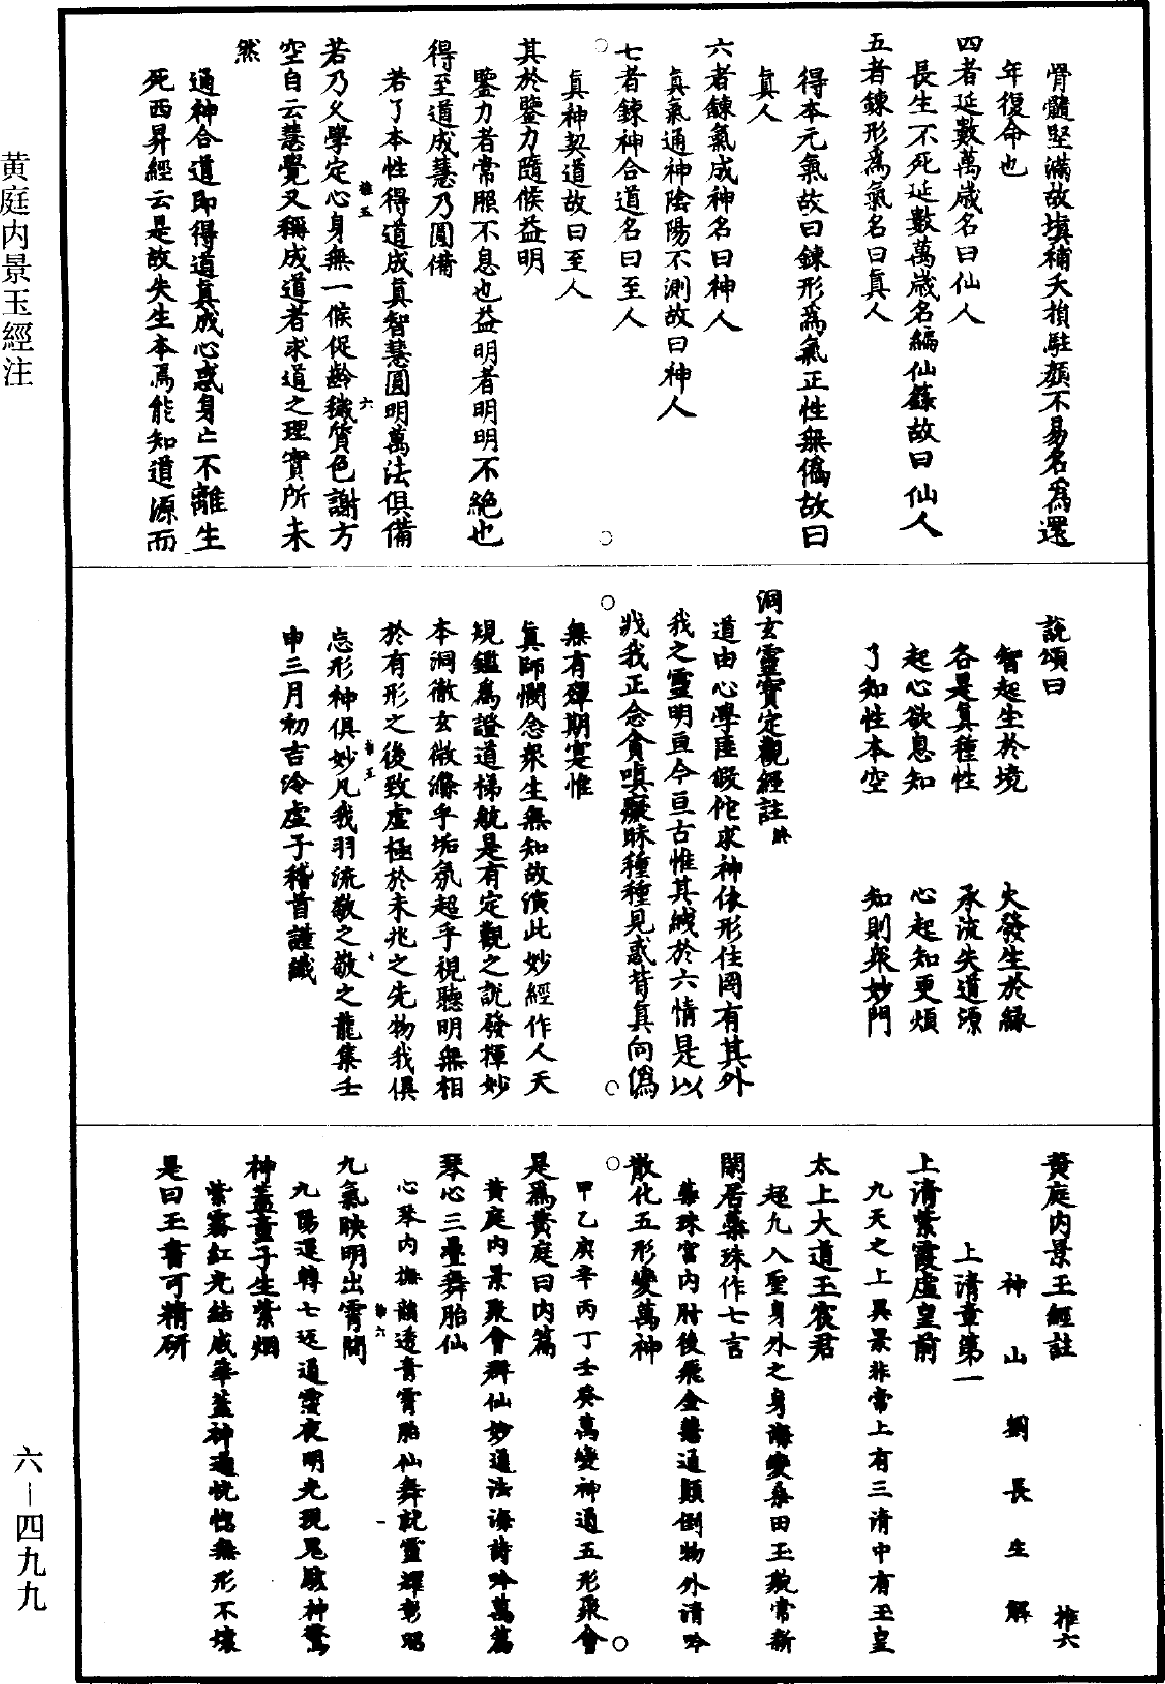 骨髓堅滿故填補夭損駐顏不易名爲還
年復命也
四者延數萬歲名曰仙人
長生不死延數萬歲名編仙籙故曰仙人
五者鍊形爲氣名曰真人
得本元氣故曰鍊形爲氣正性無僞故曰
真人
六者鍊氣成神名曰神人
真氣通神陰陽不測故曰神人
七者鍊神合道名曰至人
真神契道故曰至人
其於鑒力隨候益明
鑒力者常照不息也益明者明明不絶也
得至道成慧乃圓備
若了本性得道成真智慧圓明萬法俱備
若乃久學定心身無一候促齡穢質色謝方
空自云慧覺又稱成道者求道之理實所未
然
通神合道即得道真成心惑身亡不離生
死西昇經云是故失生本焉能知道源而
說頌曰
智起生於境 火發生於緣
各是真種性 承流失道源
起心欲息知 心起知更煩
了知性本空 知則衆妙門
洞玄靈寶定觀經註終
道由心學匪假佗求神依形住罔有其外
我之靈明亘今亘古惟其緘於六情是以
戕我正念貪嗔癡昧種種見惑背真向僞
無有殫期寔惟
真師憫念衆生無知故演此妙經作人天
規鑑爲證道梯航是有定觀之說發揮妙
本洞徹玄微滌乎垢氛超乎視聽明無相
於有形之後致虛極於未兆之先物我俱
忘形神俱妙凡我羽流敬之敬之龍集壬
申三月初吉泠虛子稽首謹識
黄庭内景玉經註 推六
神山劉長生解
上清章第一
上清紫霞虛皇前
九天之上異景非常上有三清中有玉皇
太上大道玉宸君
超凡入聖身外之身海變桑田玉貌常新
閑居蘂珠作七言
蘂珠宫内肘後飛金慧通顛倒物外清吟
散化五形變萬神
甲乙庚辛丙丁壬癸萬變神通五形聚會
是爲黄庭曰内篇
黄庭内景聚會群仙妙通法海詩吟萬篇
琴心三疊舞胎仙
心琴内撫韻透青霄胎仙舞就靈耀彰昭
九氣映明出霄間
九陽運轉七返通靈夜明光現鬼駭神驚
神蓋童子生紫烟
紫霧紅光結成華蓋神通恍惚無形不壞
是曰玉書可精研
黄庭内景玉經注
六—四九九